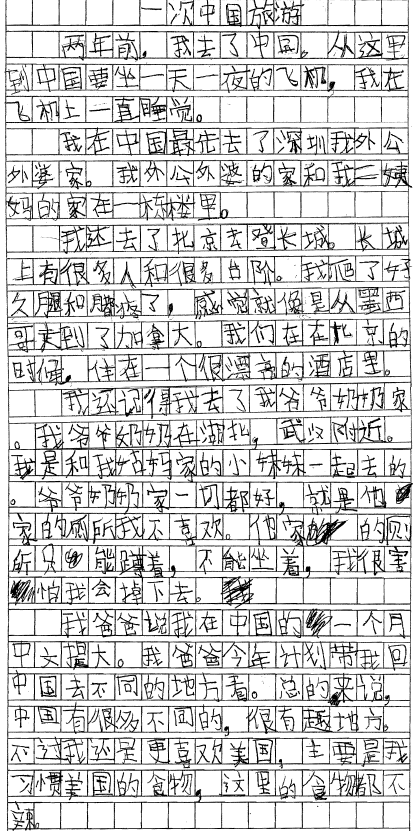 一次中国旅游
两年前，我去了中国。从这里
到中国要坐一天一夜的飞机，我在
飞机上一直睡觉。
我在中国最先去了深圳我外公
外婆家。我外公外婆的家和我二姨
妈的家在一栋楼里。
我还去了北京去登长城。长城
上有很多人和很多台阶。我爬了好
久腿和腰疼了，感觉就像是从墨西
哥走到了加拿大。我们在在北京的
时候，住在一个很漂亮的酒店里。
我还记得我去了我爷爷奶奶家
。我爷爷奶奶在湖北，武汉附近。
我是和我姑妈家的小妹妹一起去的
。爷爷奶奶家一切都好，就是他
家的厕所我不喜欢。他家 的厕
所只能蹲着，不能坐着，我很害
怕我会掉下去。
我爸爸说我在中国的 一个月
中文提大。我爸爸今年计划带我回
中国去不同的地方看。总的来说，
中国有很多不同的，很有趣地方。
不过我还是更喜欢美国，主要是我
习惯美国的食物，这里的食物都不
辣。